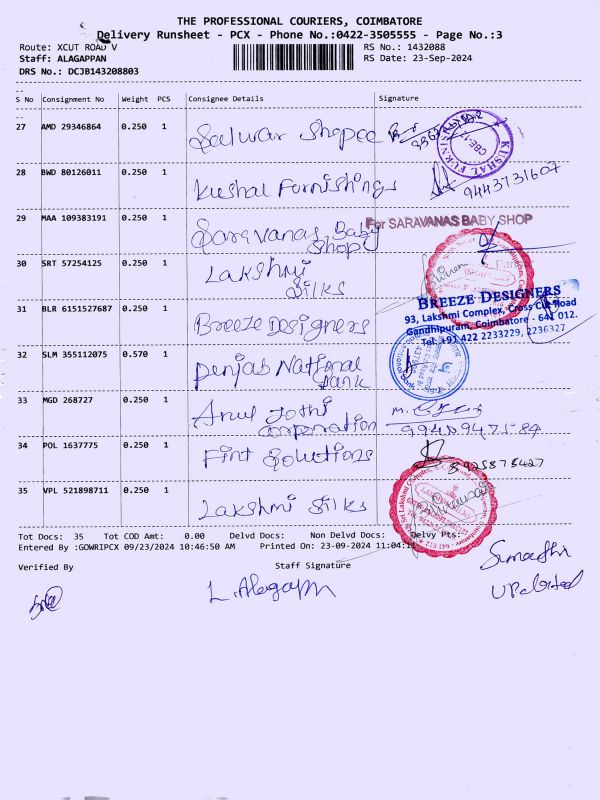 THE PROFESSIONAL COURIERS, COIMBATORE
Delivery Runsheet - PCX - Phone No.:0422-3505555 - Page No.:3
Route: XCUT ROAD V
RS No.: 1432088
Staff: ALAGAPPAN
RS Date: 23-Sep-2024
DRS No.: DCJB143208803
S No Consignment No Weight PCS Consignee Details Signature
27 AMD 29346864 0.250 1 Salwar Shopee
KUSHAL FURNISHI
28 BWD 80126011 0.250 1 Kushal Furnishings 9443731607
29 MAA 109383191 0.250 1 Saravanas Baby Shop
For SARAVANAS BABY SHOP
30 SRT 57254125 0.250 1 Lakshmi Silks
31 BLR 6151527687 0.250 1 Breeze Designers
BREEZE DESIGNERS
93, Lakshmi Complex, Cross Cut Road
Gandhipuram, Coimbatore - 641 012.
Tel: +91 422 2233229, 2236327
32 SLM 355112075 0.570 1 Punjab National Bank
33 MGD 268727 0.250 1 Arul Jothi Corporation
34 POL 1637775 0.250 1 Fint Solutions
35 VPL 521898711 0.250 1 Lakshmi Silks
Tot Docs: 35 Tot COD Amt: 0.00 Delvd Docs: Non Delvd Docs: Delvy Pts:
Entered By :GOWRIPCX 09/23/2024 10:46:50 AM Printed On: 23-09-2024 11:04:11
Verified By Staff Signature
L. Alagappn
Sumathi
Updated